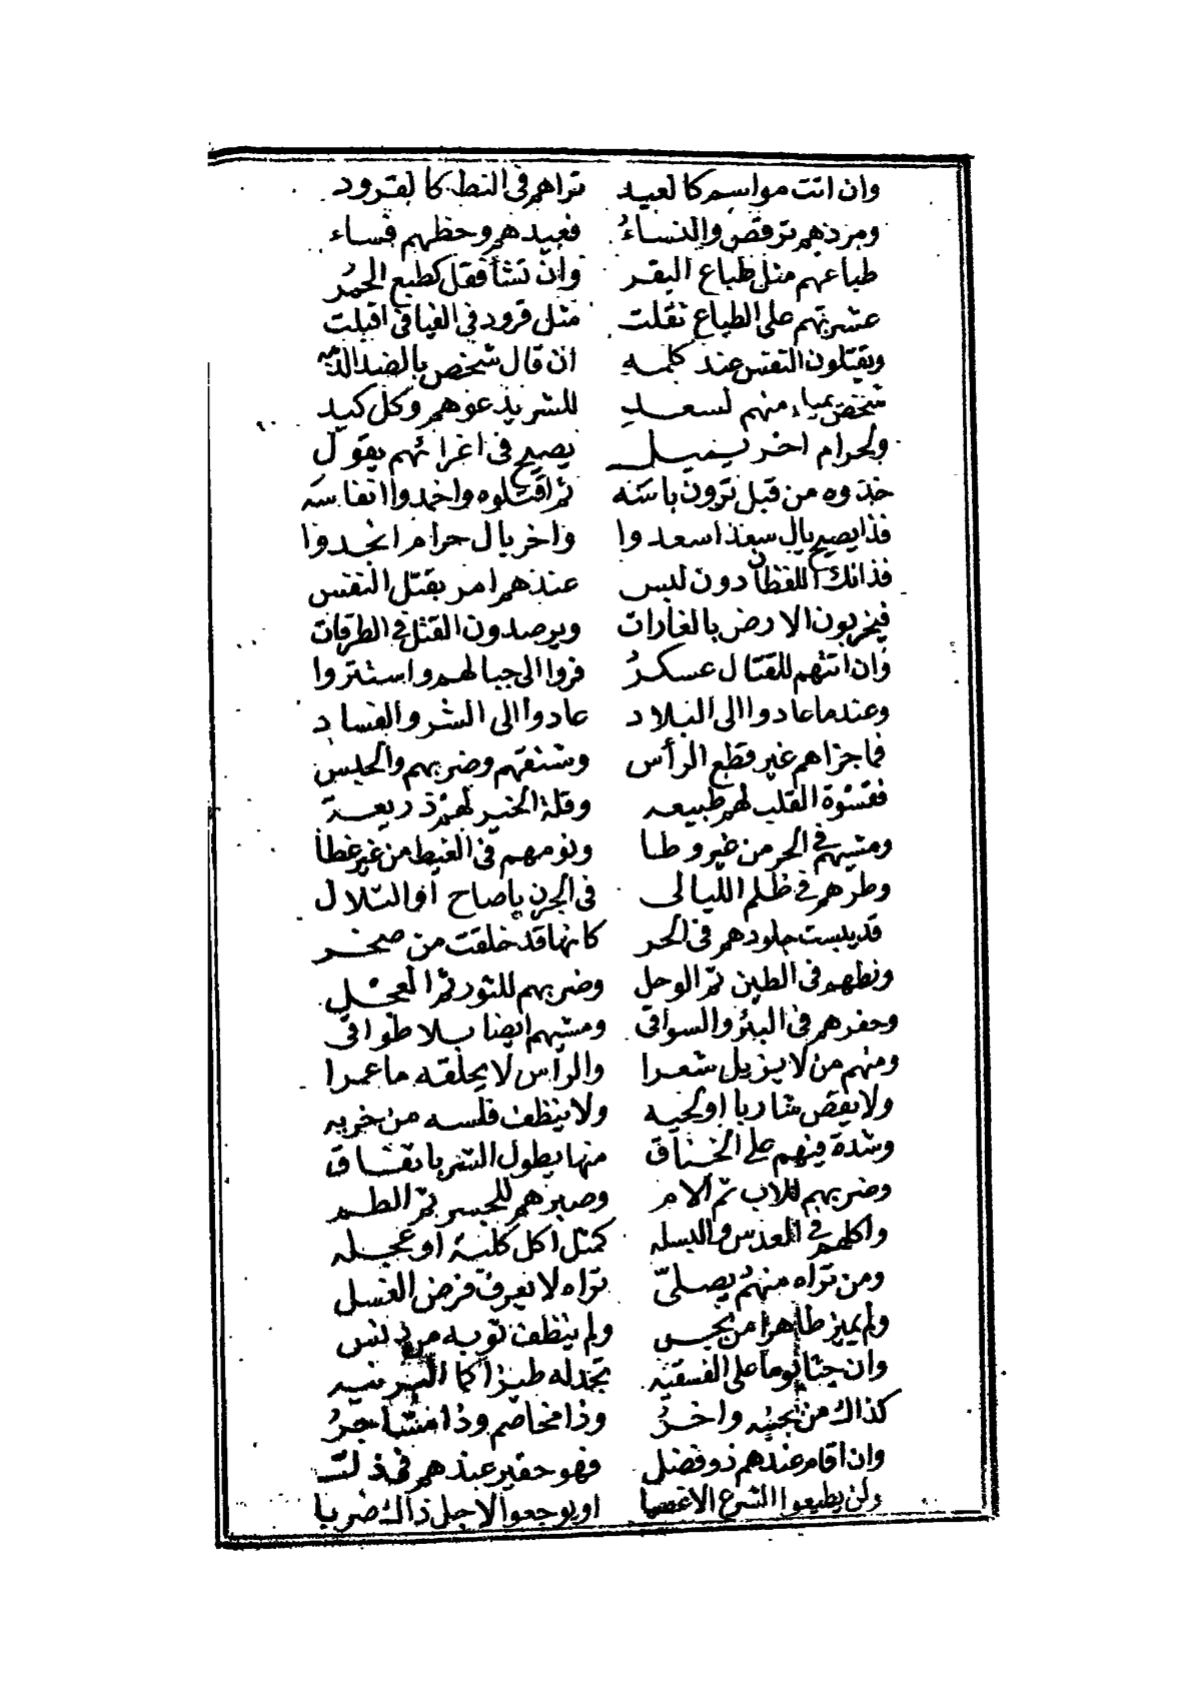 وان اتت مواسم كالعيد تراهم فى النط كالقرود
ومردهم ترقص والنساءُ فعيدهم وحظهم فساء
طباعهم مثل طباع البقر وان تشأ فقل كطبع الحمُر
عشرتهم على الطباع ثقلت مثل قرود فى الفيافى اقبلت
ويقتلون النفس عند كلمه ان قال شخص بالضد
شخص منهم لسعد للشر يدعوهم وكل كيد
ولحرام اخر يميل يصيح فى اغرائهم يقول
خذوه من قبل ترون باسه ثم اقتلوه واخمدوا انفاسه
فذا يصيح يال سعد اسعدوا واخر يال حرام انجدوا
فذانك اللفظان دون لبس عندهم امر بقتل النفس
فيخربون الارض بالغارات ويرصدون القتل فى الطرقات
وان اتتهم للقتال عسكرُ فروا الى جبالهم واستتروا
وعندما عادوا الى البلاد عادوا الى الشر والفساد
فما جزاهم غير قطع الرأس وشنقهم وضربهم والحبس
فقسوة القلب لهم طبيعه وقلة الخير لهم ذريعة
ومشيهم فى الحر من غير وطا ونومهم فى الغيط من غير غطا
وطرهم فى ظلم الليالى فى الجرن ياصاح او التلال
قد يبست جلودهم فى الحر كانها قد خلقت من صخر
ونطهم فى الطين ثم الوحل وضربهم للثور ثم العجل
وحفرهم فى البئر والسواقى ومشيهم ايضا بلا طواقى
ومنهم من لا يزيل شعرا والرأس لا يحلقه ما عمرا
ولا يقص شاربا او لحيه ولا ينظف فلسه من خريه
وشدة فيهم على الخناق منها يطول الشر باتفاق
وضربهم للاب ثم الام وصبرهم للجسر ثم الطم
واكلهم فى العدس والبسله كمثل اكل كلبة او عجله
ومن تراه منهم يصلىّ تراه لا يعرف فرض الغسل
ولم يميز طاهرا من نجس ولم ينظف ثوبه من دنس
وان جئتا يوما على الفسقيه تجد له طرزا كما
كذاك من بجنبه واخرُ وذا مخاصم وذا متشاجرُ
وان اقام عندهم ذو فضل فهو حقير عندهم فى ذل
ولن يطيعوا الشرع الا غصبا او يوجعوا لاجل ذاك ضربا